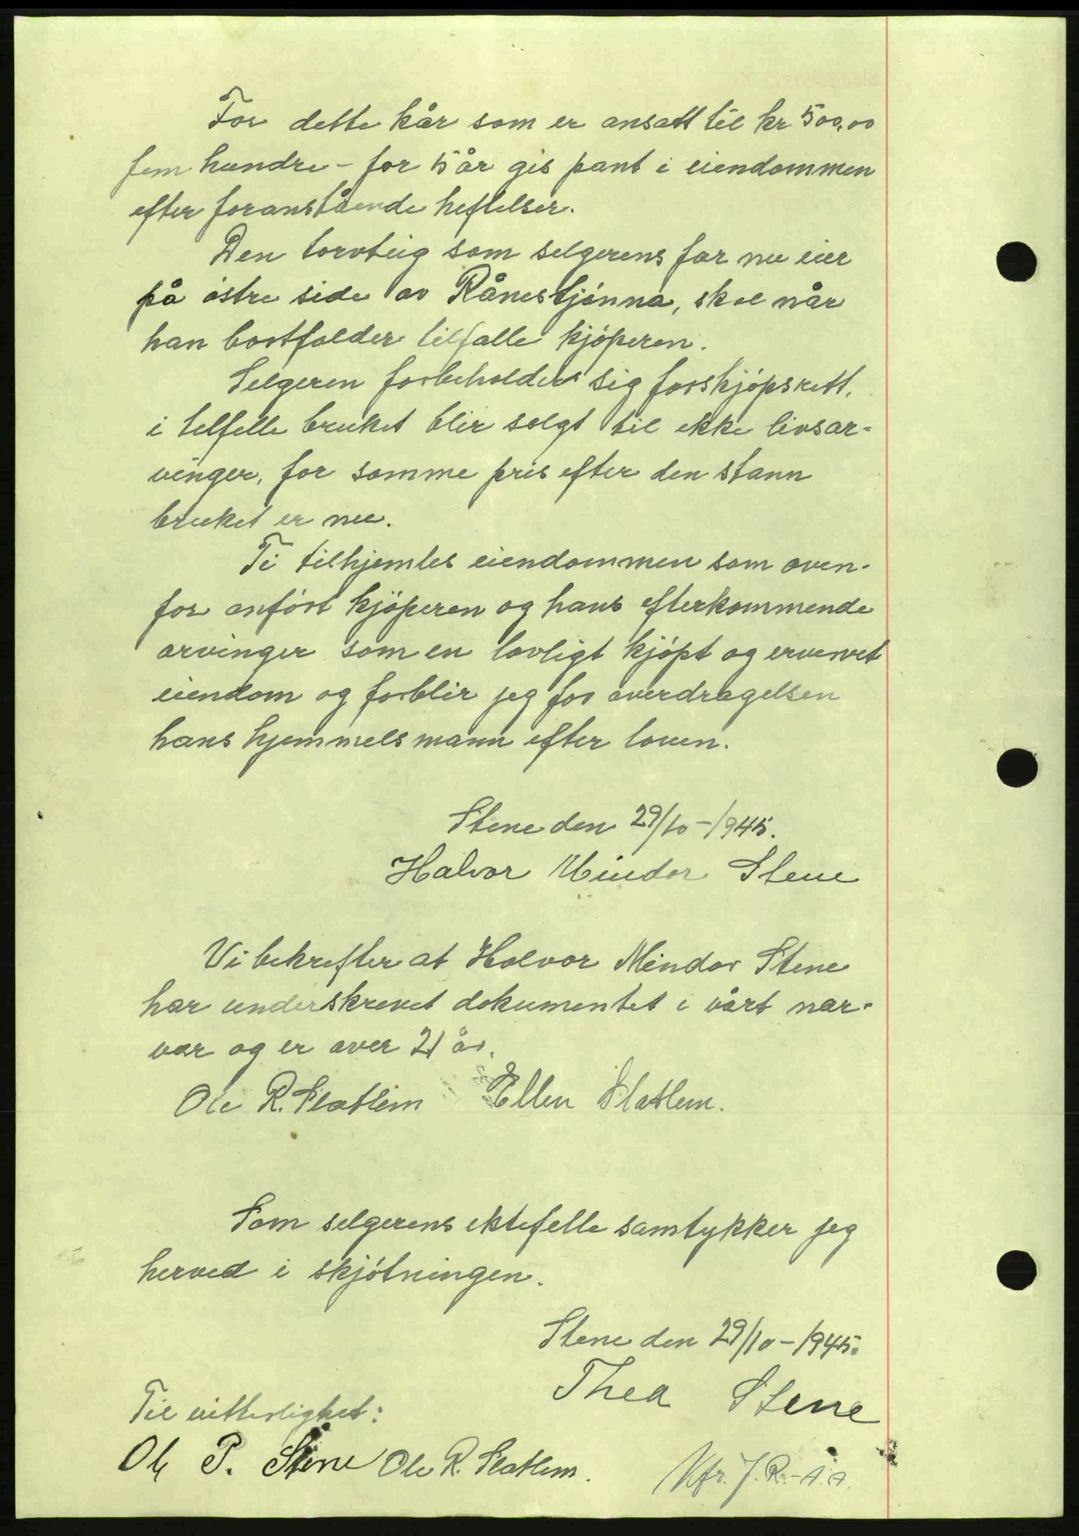 For dette kår som er ansatt til kr 500,00
fem hundre – for 5 år gis pant i eiendommen
efter foranstående heftelser.
Den torvteig som selgerens far nu eier
på østre side av Rånestjønna, skal når
han bortfalder tilfalle kjøperen.
Selgeren forbeholder sig forskjøpsrett,
i telfelle bruket blir solgt til ikke livsar-
vinger, for samme pris efter den stann
bruket er nu.
Ti tilhjemles eiendommen som oven-
for anført kjøperen og hans efterkommende
arvinger som en lovligt kjøpt og ervervet
eiendom og forblir jeg for overdragelsen
hans hjemmelsmann efter loven.
Stene den 29/10-1945.
Halvor Mindor Stene
Vi bekrefter at Halvor Mindor Stene
har underskrevet dokumentet i vårt nær-
vær og er over 21 år.
Ole R. Slatlem Ellen Slatlem.
Som selgerens ektefelle samtykker jeg
herved i skjøtningen.
Stene den 29/10-1945.
Thea Stene
Til vitterlighet:
Ole P. Stene Ole R. Slatlem.
Kfr. J. R. - A.A.